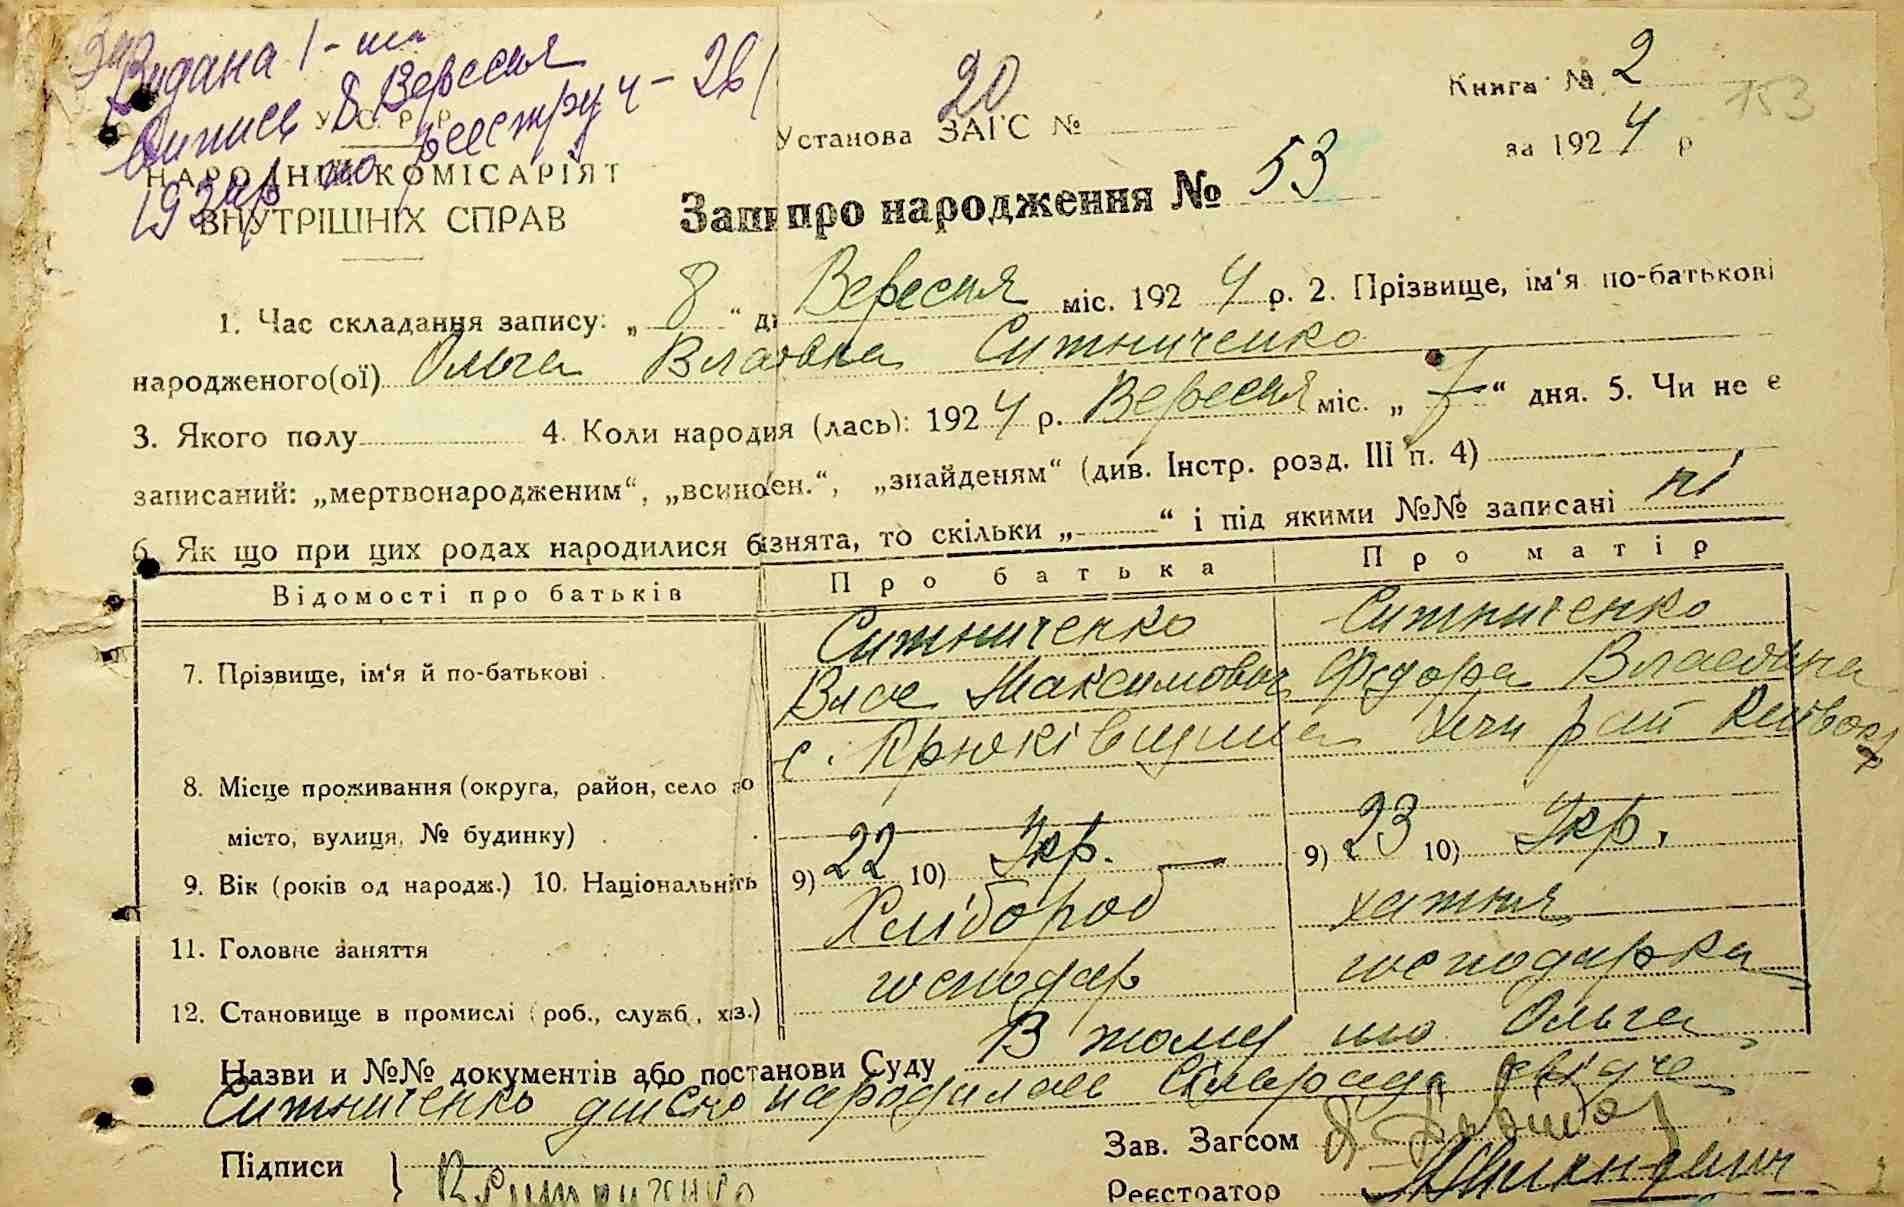 Видана 1-ша
Випись 8 Вересня
1924 р по реєстру ч-261
У. С. Р. Р.
НАРОДНИЙ КОМІСАРІЯТ
ВНУТРІШНІХ СПРАВ
20
Установа ЗАГС №
Книга № 2
153
за 1924 р
Запи про народження № 53
1. Час складання запису: „ 8 “ д Вересня міс. 192 4 р. 2. Прізвище, ім‘я по-батькові
народженого(ої) Ольга Власовна Ситниченко
3. Якого полу 4. Коли народия (лась): 192 4 р. Вересня міс. „ 7 “ дня. 5. Чи не є
записаний: „мертвонародженим“, „всиноен.“, „знайденям“ (див. Інстр. розд. III п. 4)
6. Як що при цих родах народилися бізнята, то скільки „ “ і під якими №№ записані ні
Відомості про батьків Про батька Про матір
7. Прізвище, ім‘я й по-батькові
Ситниченко Ситниченко
Влас Максимович Федора Власовна
с. Крюківщина рай
8. Місце проживання (округа, район, село або
місто, вулиця, № будинку)
9. Вік (років од народж.) 10. Національність 9) 22 10) Укр. — 9) 23 10) Укр.
11. Головне заняття Хлібороб хатня
12. Становище в промислі (роб., служб., хаз.) господар господарка
Назви и №№ документів або постанови Суду В тому що Ольга
Ситниченко дійсно народилась Сільрада свідче
Підписи } Вситниченко
Зав. Загсом
Реєстратор